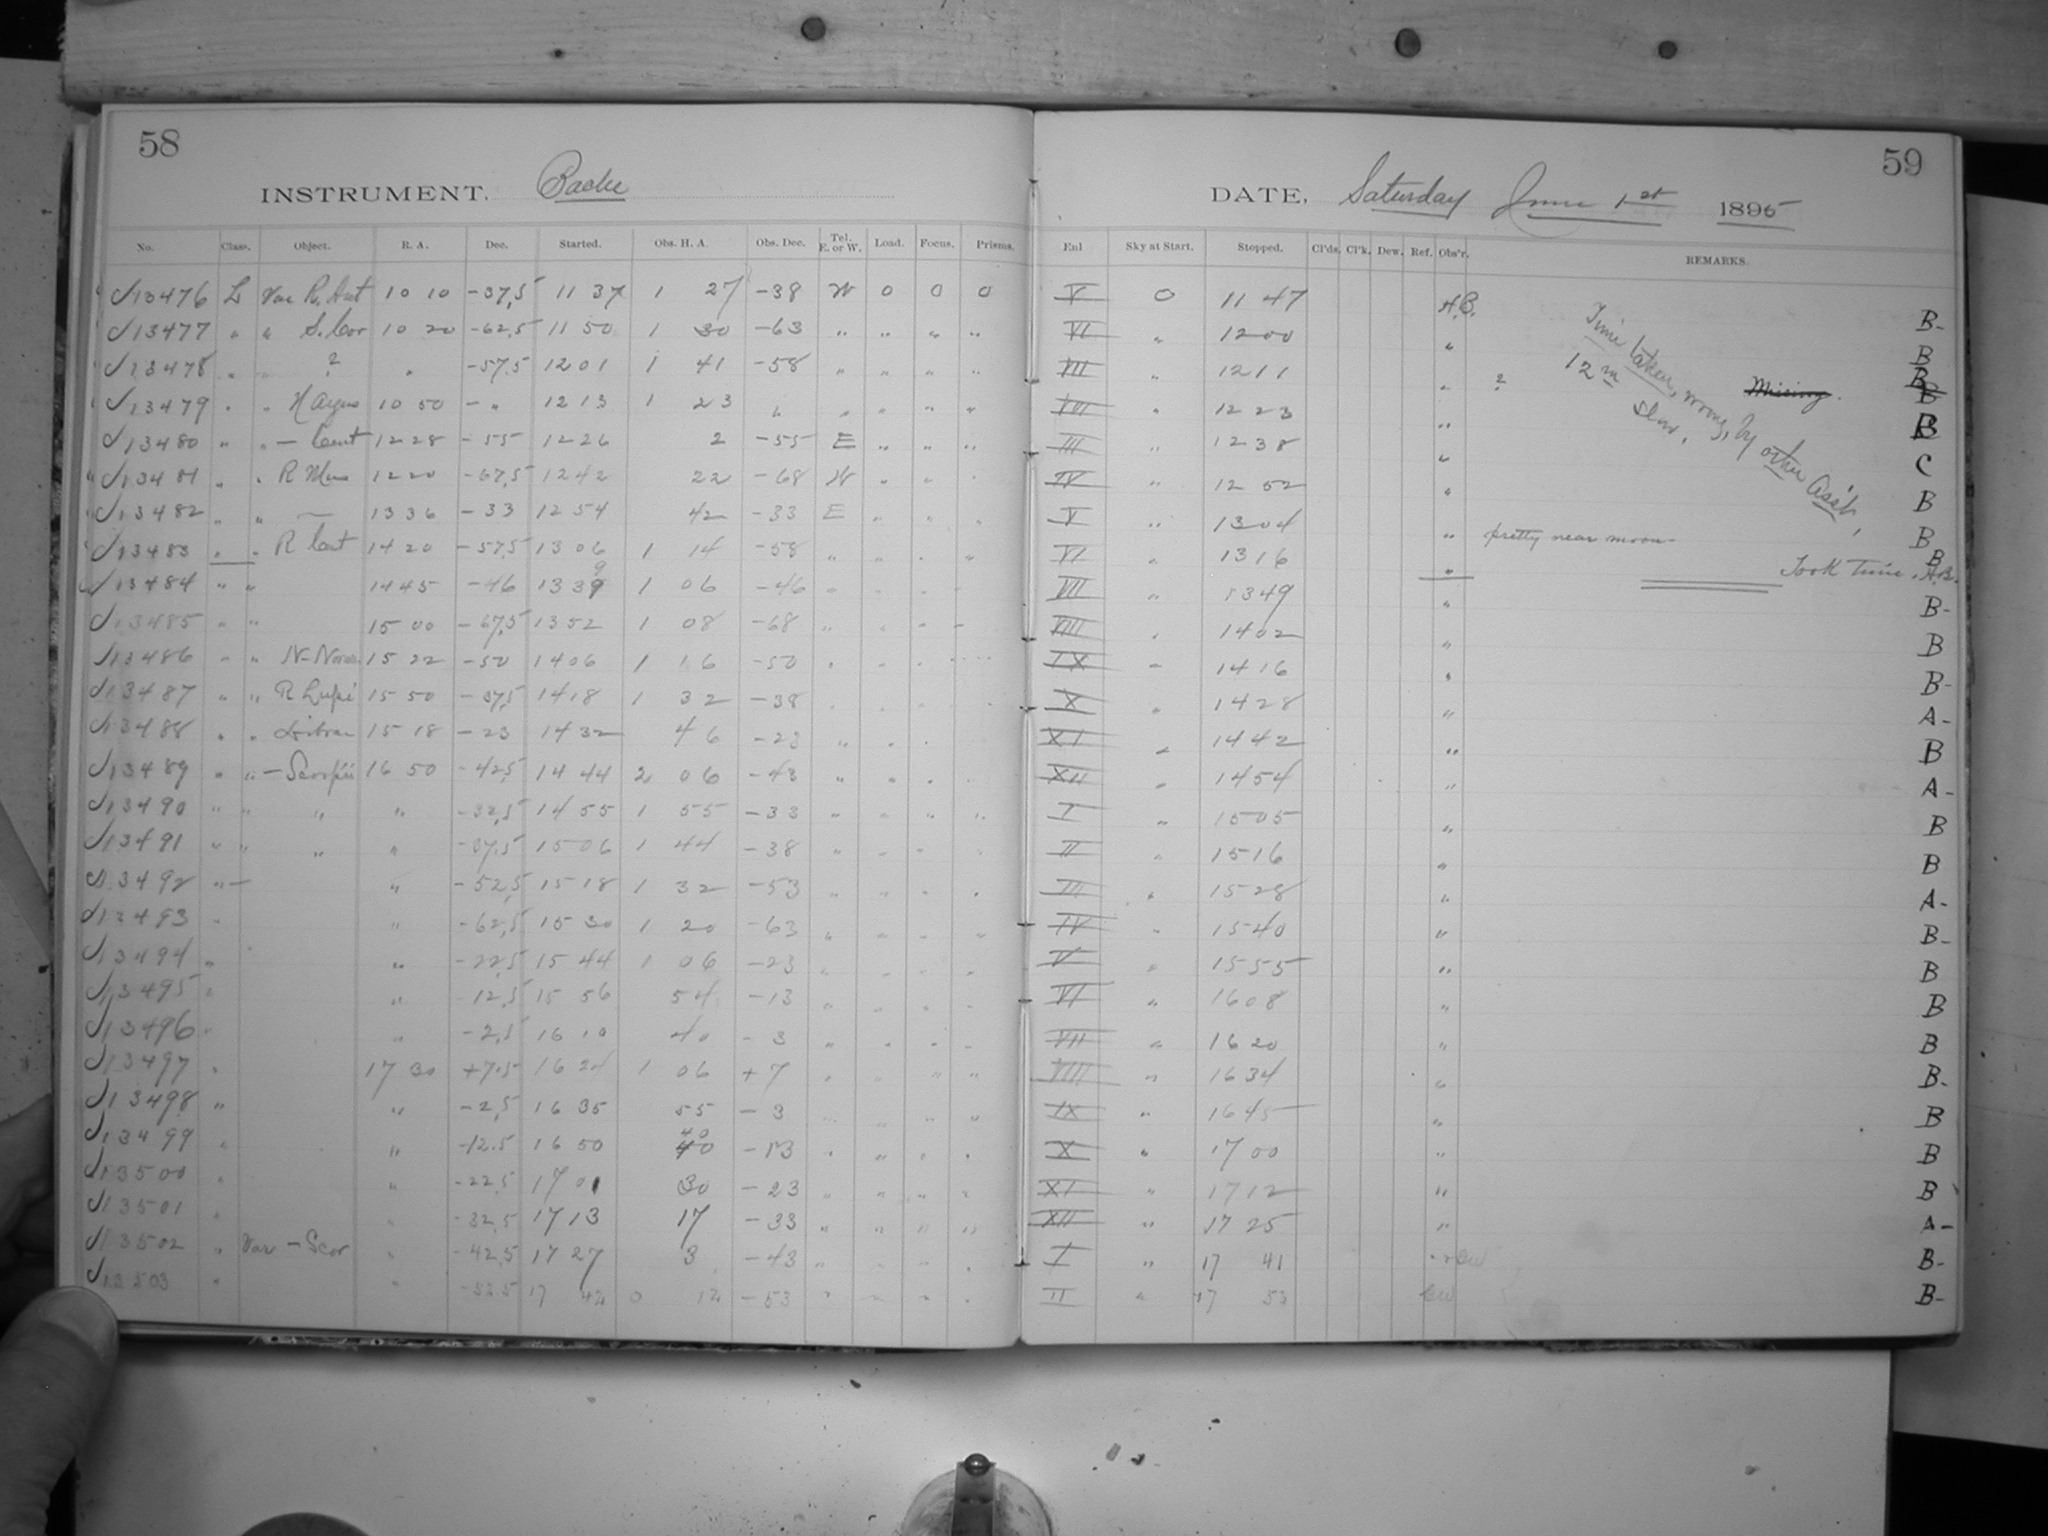 58
INSTRUMENT. Bache
No. Class. Object. R. A. Dec. Started. Obs. H. A. Obs. Dec. Tel. E. or W. Load. Focus. Prisms.
√13476 L Var R. Ant 10 10 -37.5 11 37 1 27 -38 W 0 0 0
√13477 " " S. Car 10 20 -62.5 11 50 1 30 -63 " " " "
√13478 " " ? " -57.5 12 01 1 41 -58 " " " "
√13479 " " N Argus 10 50 - " 12 13 1 23 " " " " "
√13480 " " - Cent 12 28 -55 12 26 2 -55 E " " "
√13481 " " R Mus 12 20 -67.5 12 42 22 -68 W " " "
√13482 " " — 13 36 -33 12 54 42 -33 E " " "
√13483 " " R Cent 14 20 -57.5 13 06 1 14 -58 " " " "
√13484 " " 14 45 -46 13 39 1 06 -46 " " " "
√13485 " " 15 00 -67.5 13 52 1 08 -68 " " " "
√13486 " " N-Norm 15 22 -50 14 06 1 16 -50 " " " "
√13487 " " R Lupi 15 50 -37.5 14 18 1 32 -38 " " " "
√13488 " " Librae 15 18 -23 14 32 46 -23 " " "
√13489 " " - Scorpii 16 50 -42.5 14 44 2 06 -43 " " " "
√13490 " " " " -32.5 14 55 1 55 -33 " " " "
√13491 " " " " -37.5 15 06 1 44 -38 " " " "
√13492 " — " -52.5 15 18 1 32 -53 " " " "
√13493 " " -62.5 15 30 1 20 -63 " " " "
√13494 " " -22.5 15 44 1 06 -23 " " " "
√13495 " " -12.5 15 56 54 -13 " " " "
√13496 " " -2.5 16 10 40 -3 " " " "
√13497 " 17 30 +7.5 16 24 1 06 +7 " " " "
√13498 " " -2.5 16 35 55 -3 " " " "
√13499 " " -12.5 16 50 40 -13 " " " "
√13500 " " -22.5 17 01 30 -23 " " " "
√13501 " " -32.5 17 13 17 -33 " " " "
√13502 " Var - Scor " -42.5 17 27 3 -43 " " " "
√13503 " " -52.5 17 42 0 12 -53 " " " "
59
DATE, Saturday June 1st 1895
Enl Sky at Start. Stopped. Cl'ds. Cl'k. Dew. Ref. Obs'r. REMARKS.
V 0 11 47 H.B. B-
VI " 12 00 " B
VII " 12 11 " ? Missing. B
VII " 12 23 " B
III " 12 38 " C
IV " 12 52 " B
V " 13 04 " pretty near moon B
VI " 13 16 " B
Time taken, wrong, by other Ass't,
12 m slow.
Took time. H.B.
VII " 1349 " B-
VIII " 1402 " B
IX " 1416 " B-
X " 1428 " A-
XI " 1442 " B
XII " 1454 " A-
I " 1505 " B
II " 1516 " B
III " 1528 " A-
IV " 1540 " B-
V " 1555 " B
VI " 1608 " B
VII " 1620 " B
VIII " 1634 " B-
IX " 1645 " B
X " 17 00 " B
XI " 1712 " B
XII " 17 25 " A-
I " 17 41 B-
II " 17 53 B-